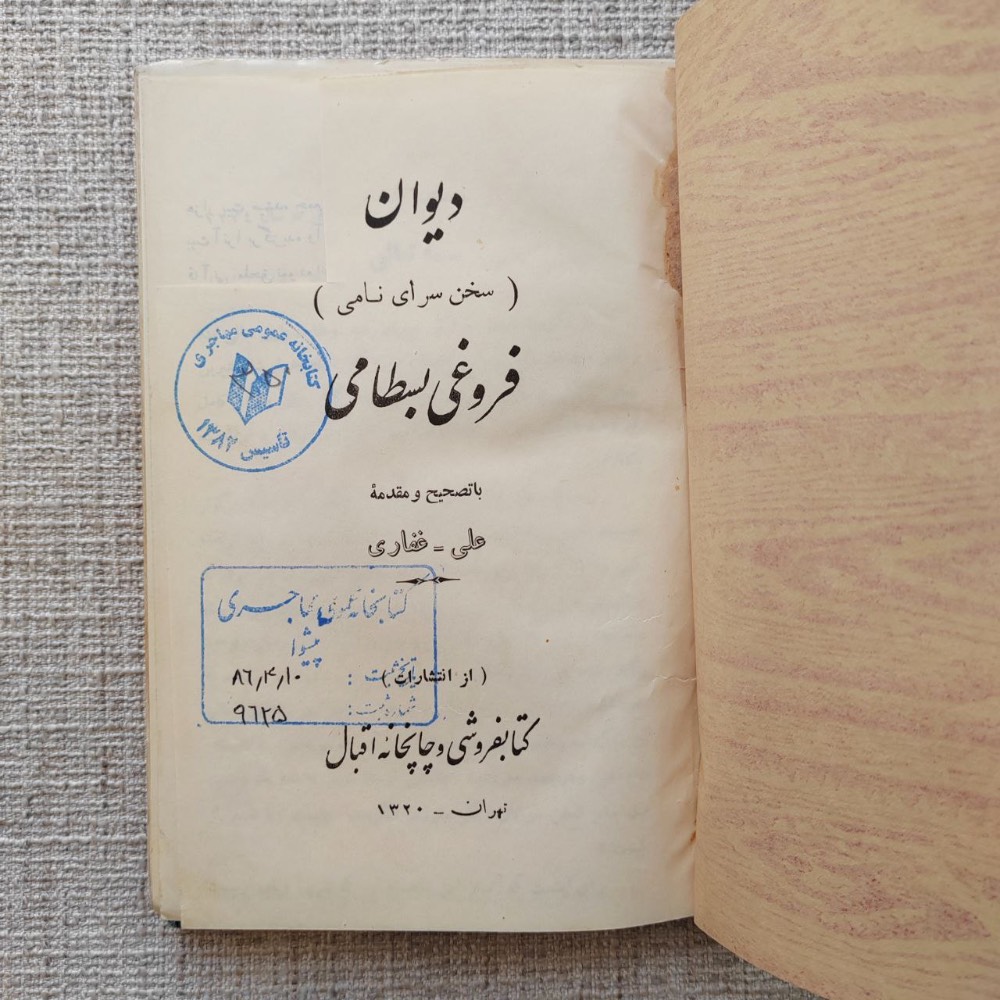 دیوان
( سخن سرای نامی )
فروغی بسطامی
با تصحیح و مقدمهٔ
علی - غفاری
( از انتشارات )
کتابفروشی و چاپخانه اقبال
تهران - ۱۳۲۰
کتابخانه عمومی مهاجری
تأسیس ۱۳۸۲
کتابخانه عمومی مهاجری
پیشوا
تاریخ ثبت : ۸۶٫۴٫۱۰
شماره ثبت : ۹۶۲۵